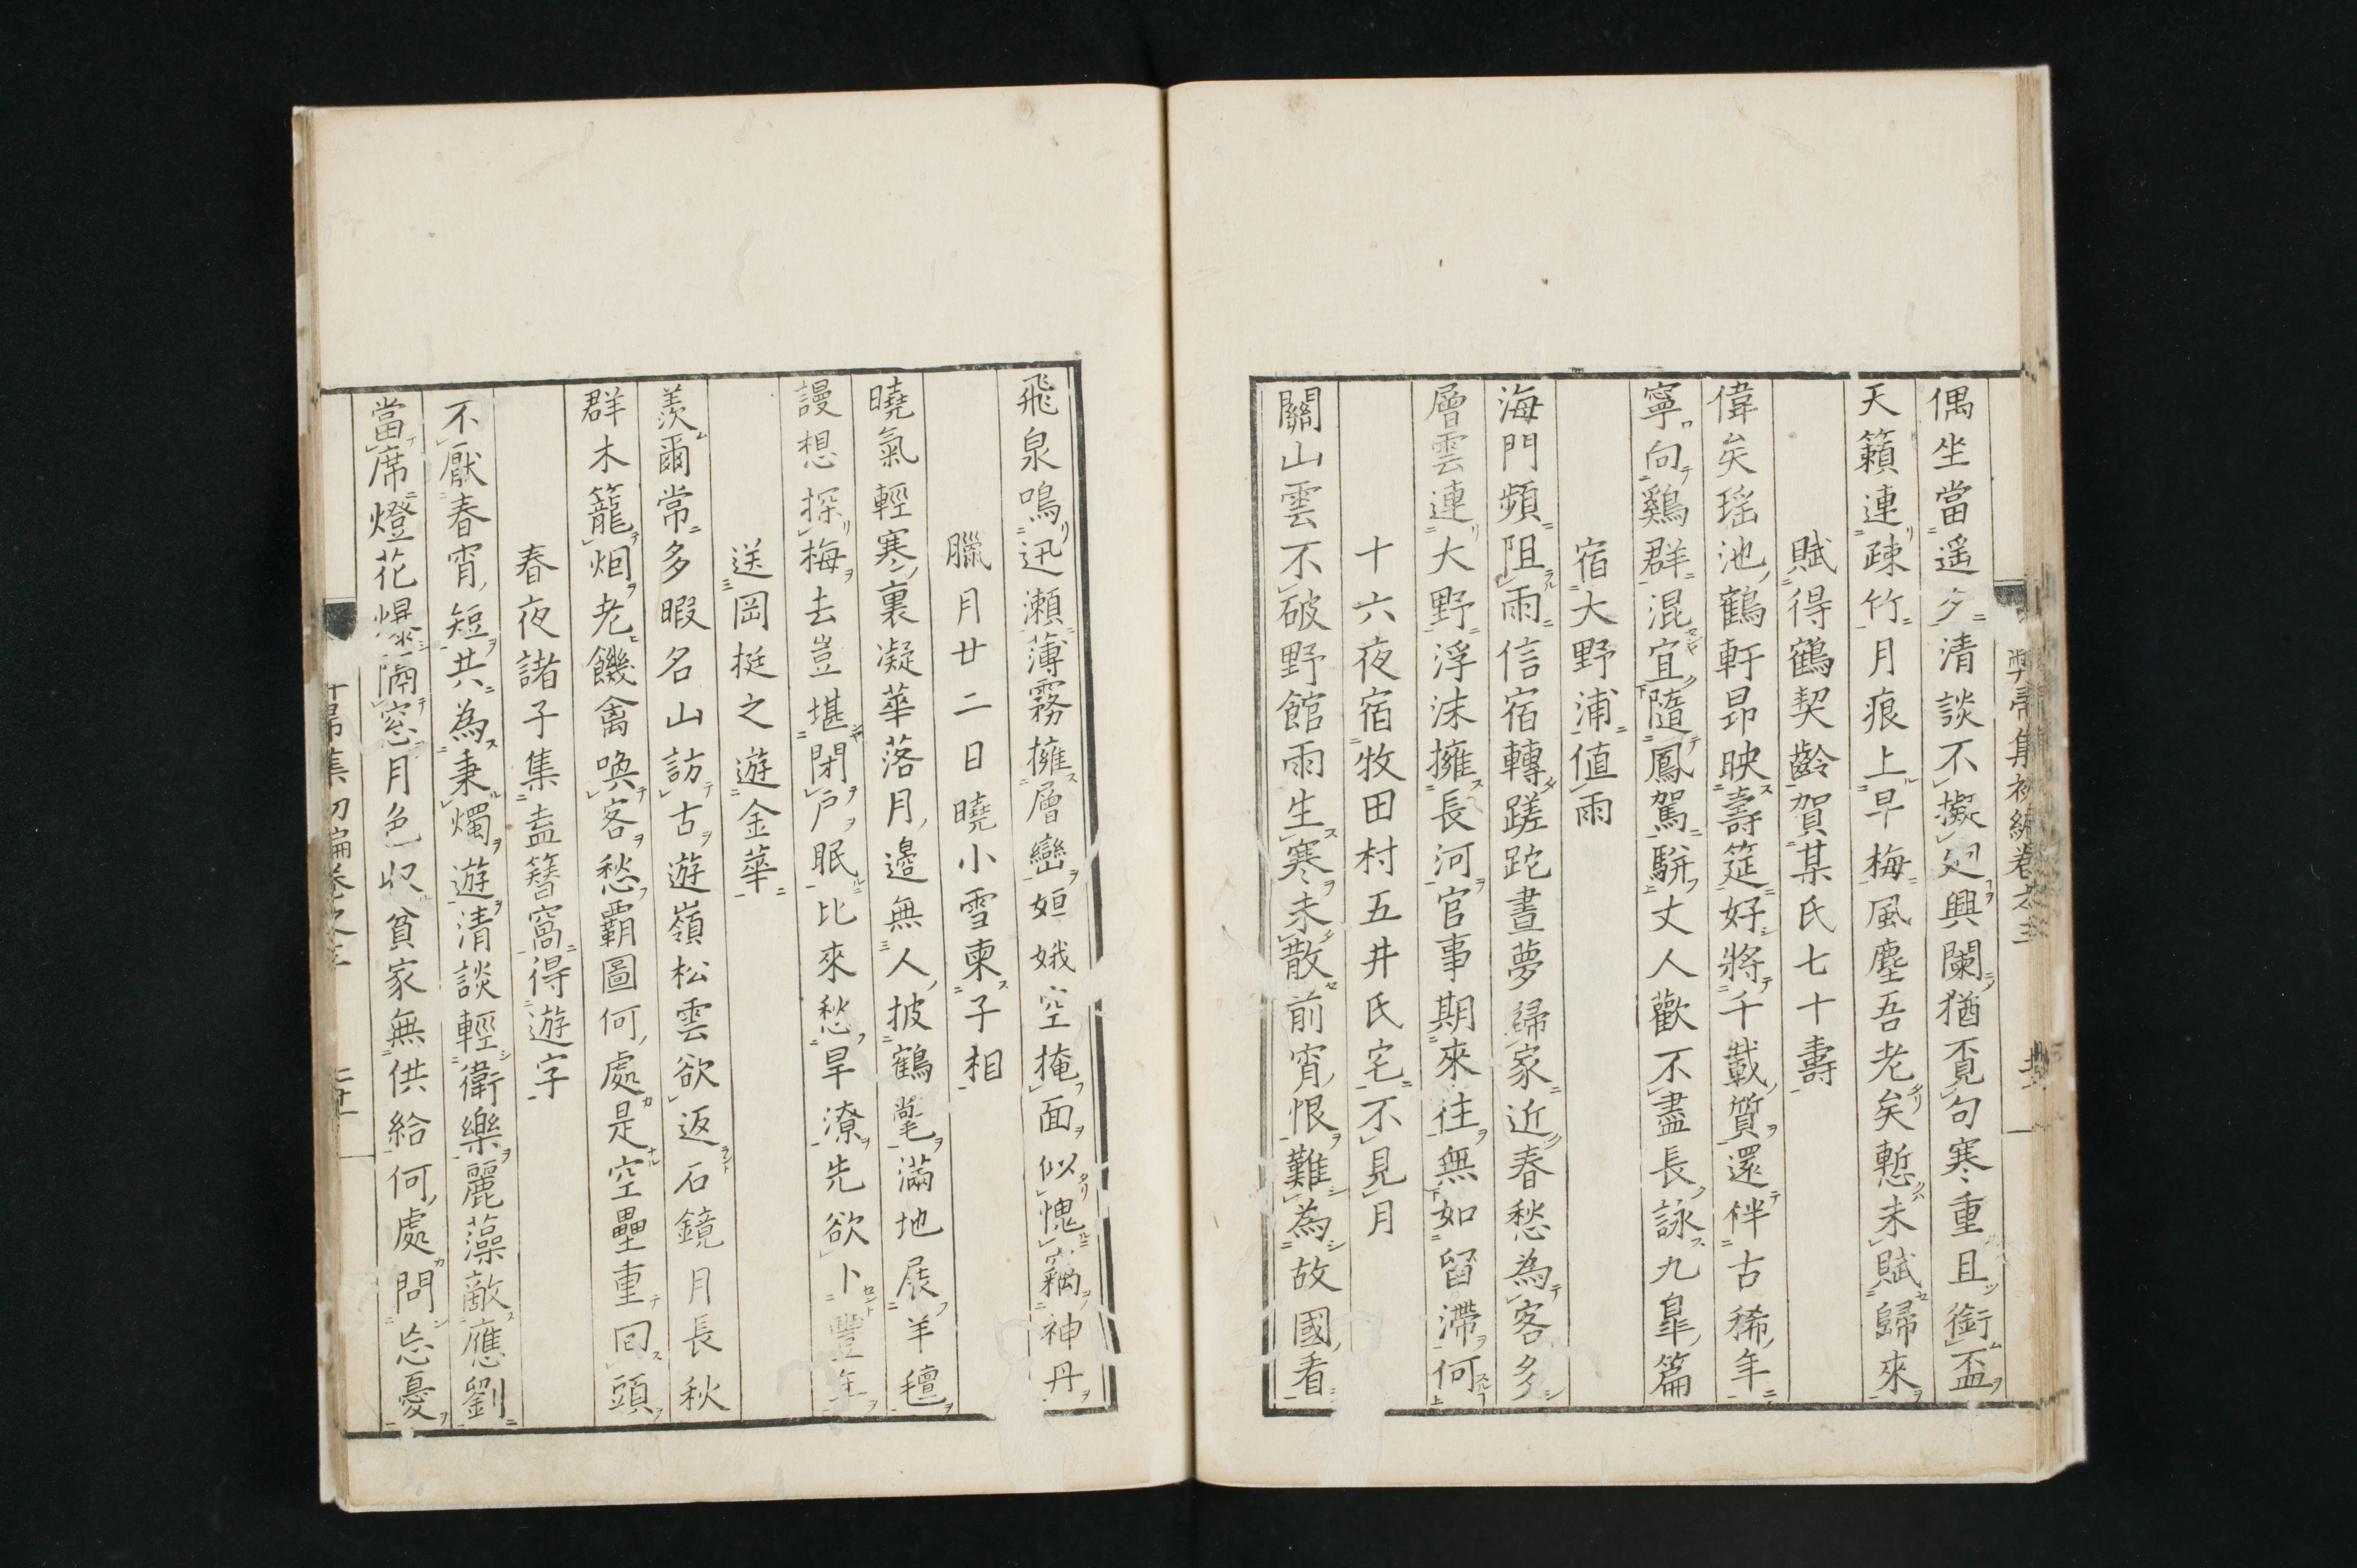 偶坐當遥夕清談不擬廻興闌猶覓句寒重且銜盃
天籟連疎竹月痕上早梅風塵吾老矣慙未賦歸來
賦得鶴契齡賀某氏七十壽
偉矣瑶池鶴軒昻映壽筵好將千載質還伴古稀年
寧向鷄群混宜隨鳳駕騈丈人歡不盡長詠九皐篇
宿大野浦値雨
海門頻阻雨信宿轉蹉跎晝夢歸家近春愁為客多
層雲連大野浮沫擁長河官事期來往無如留滯何
十六夜宿牧田村五井氏宅不見月
關山雲不破野館雨生寒未散前宵恨難為故國看
飛泉鳴迅瀬薄霧擁層巒姮娥空掩面似愧竊神丹
臘月廿二日曉小雪柬子相
曉氣輕寒裏凝華落月邊無人披鶴氅滿地展羊氊
謾想探梅去豈堪閉戶眠比來愁旱潦先欲卜豐年
送岡挺之遊金華
羨爾常多暇名山訪古遊嶺松雲欲返石鏡月長秋
群木籠烟老饑禽喚客愁覇圖何處是空壘重回頭
春夜諸子集盍簪窩得遊字
不厭春宵短共為秉燭遊清談輕衛樂麗藻敵應劉
當席燈花爆隔窓月色收貧家無供給何處問忘憂